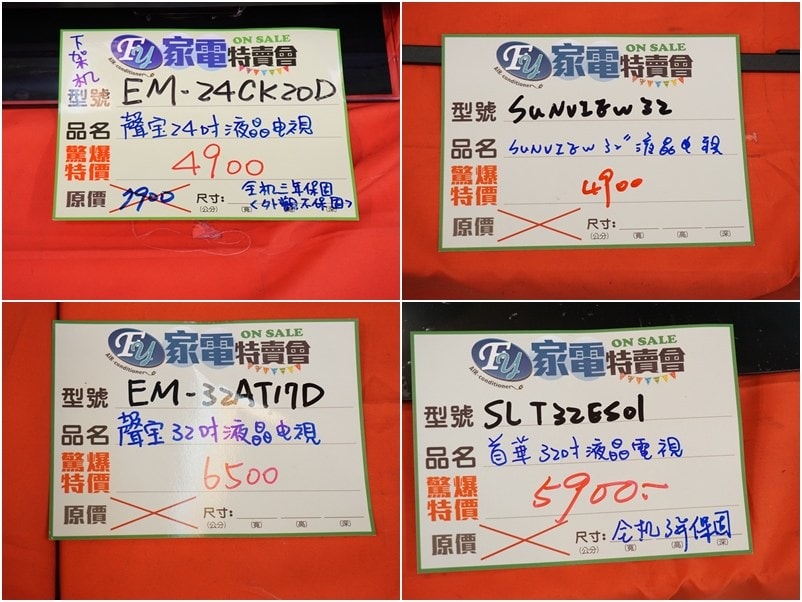 下架机
Fu 家電特賣會 ON SALE
AIR-conditioner
型號 EM-24CK20D
品名 聲宝24吋液晶电視
驚爆特價 4900
原價 7900 尺寸: 全机三年保固
(公分) (寬) (高) (深) <外觀不保固>
Fu 家電特賣會 ON SALE
AIR-conditioner
型號 SUNVIEW 32
品名 SUNVIEW 32" 液晶电視
驚爆特價 4900
原價 尺寸:
(公分) (寬) (高) (深)
Fu 家電特賣會 ON SALE
AIR-conditioner
型號 EM-32AT17D
品名 聲宝32吋液晶电視
驚爆特價 6500
原價 尺寸:
(公分) (寬) (高) (深)
Fu 家電特賣會 ON SALE
AIR-conditioner
型號 SLT32ES01
品名 首華32吋液晶電視
驚爆特價 5900.-
原價 尺寸: 全机3年保固
(公分) (寬) (高) (深)